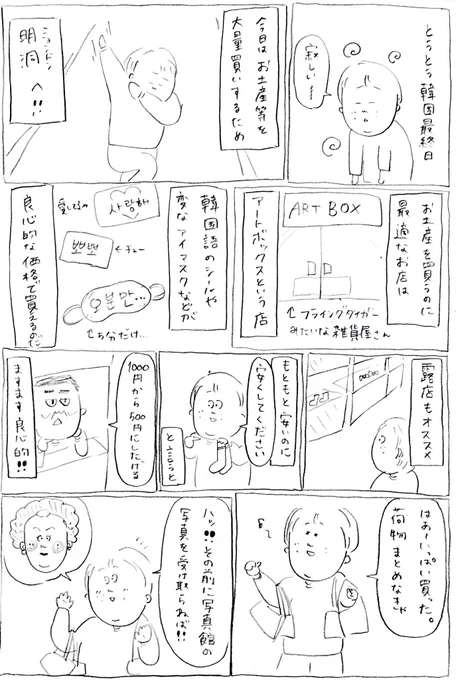 とうとう韓国最終日
寂しい〜
今日はお土産等を
大量買いするため
ミョンドン
明洞へ!!
お土産を買うのに
最適なお店は
ART BOX
↑フライングタイガー
みたいな雑貨屋さん
アートボックスという店
韓国語のシールや
変なアイマスクなどが
사랑해
愛してるの
뽀뽀
←チュー
오분만...
↑5分だけ...
良心的な価格で買えるのだ
露店もオススメ
もともと安いのに
安くしてください
と言うと
1000円から500円にしたける
ますます良心的!!
はぁーいっぱい買った。
荷物まとめなきゃ
ハッ!!その前に写真館の
写真を受け取らねば!!